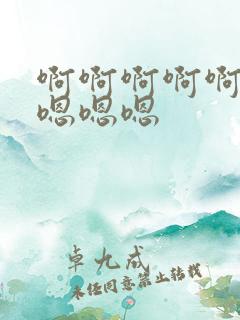 啊啊啊啊啊
嗯嗯嗯
卓九成
未经同意禁止转载